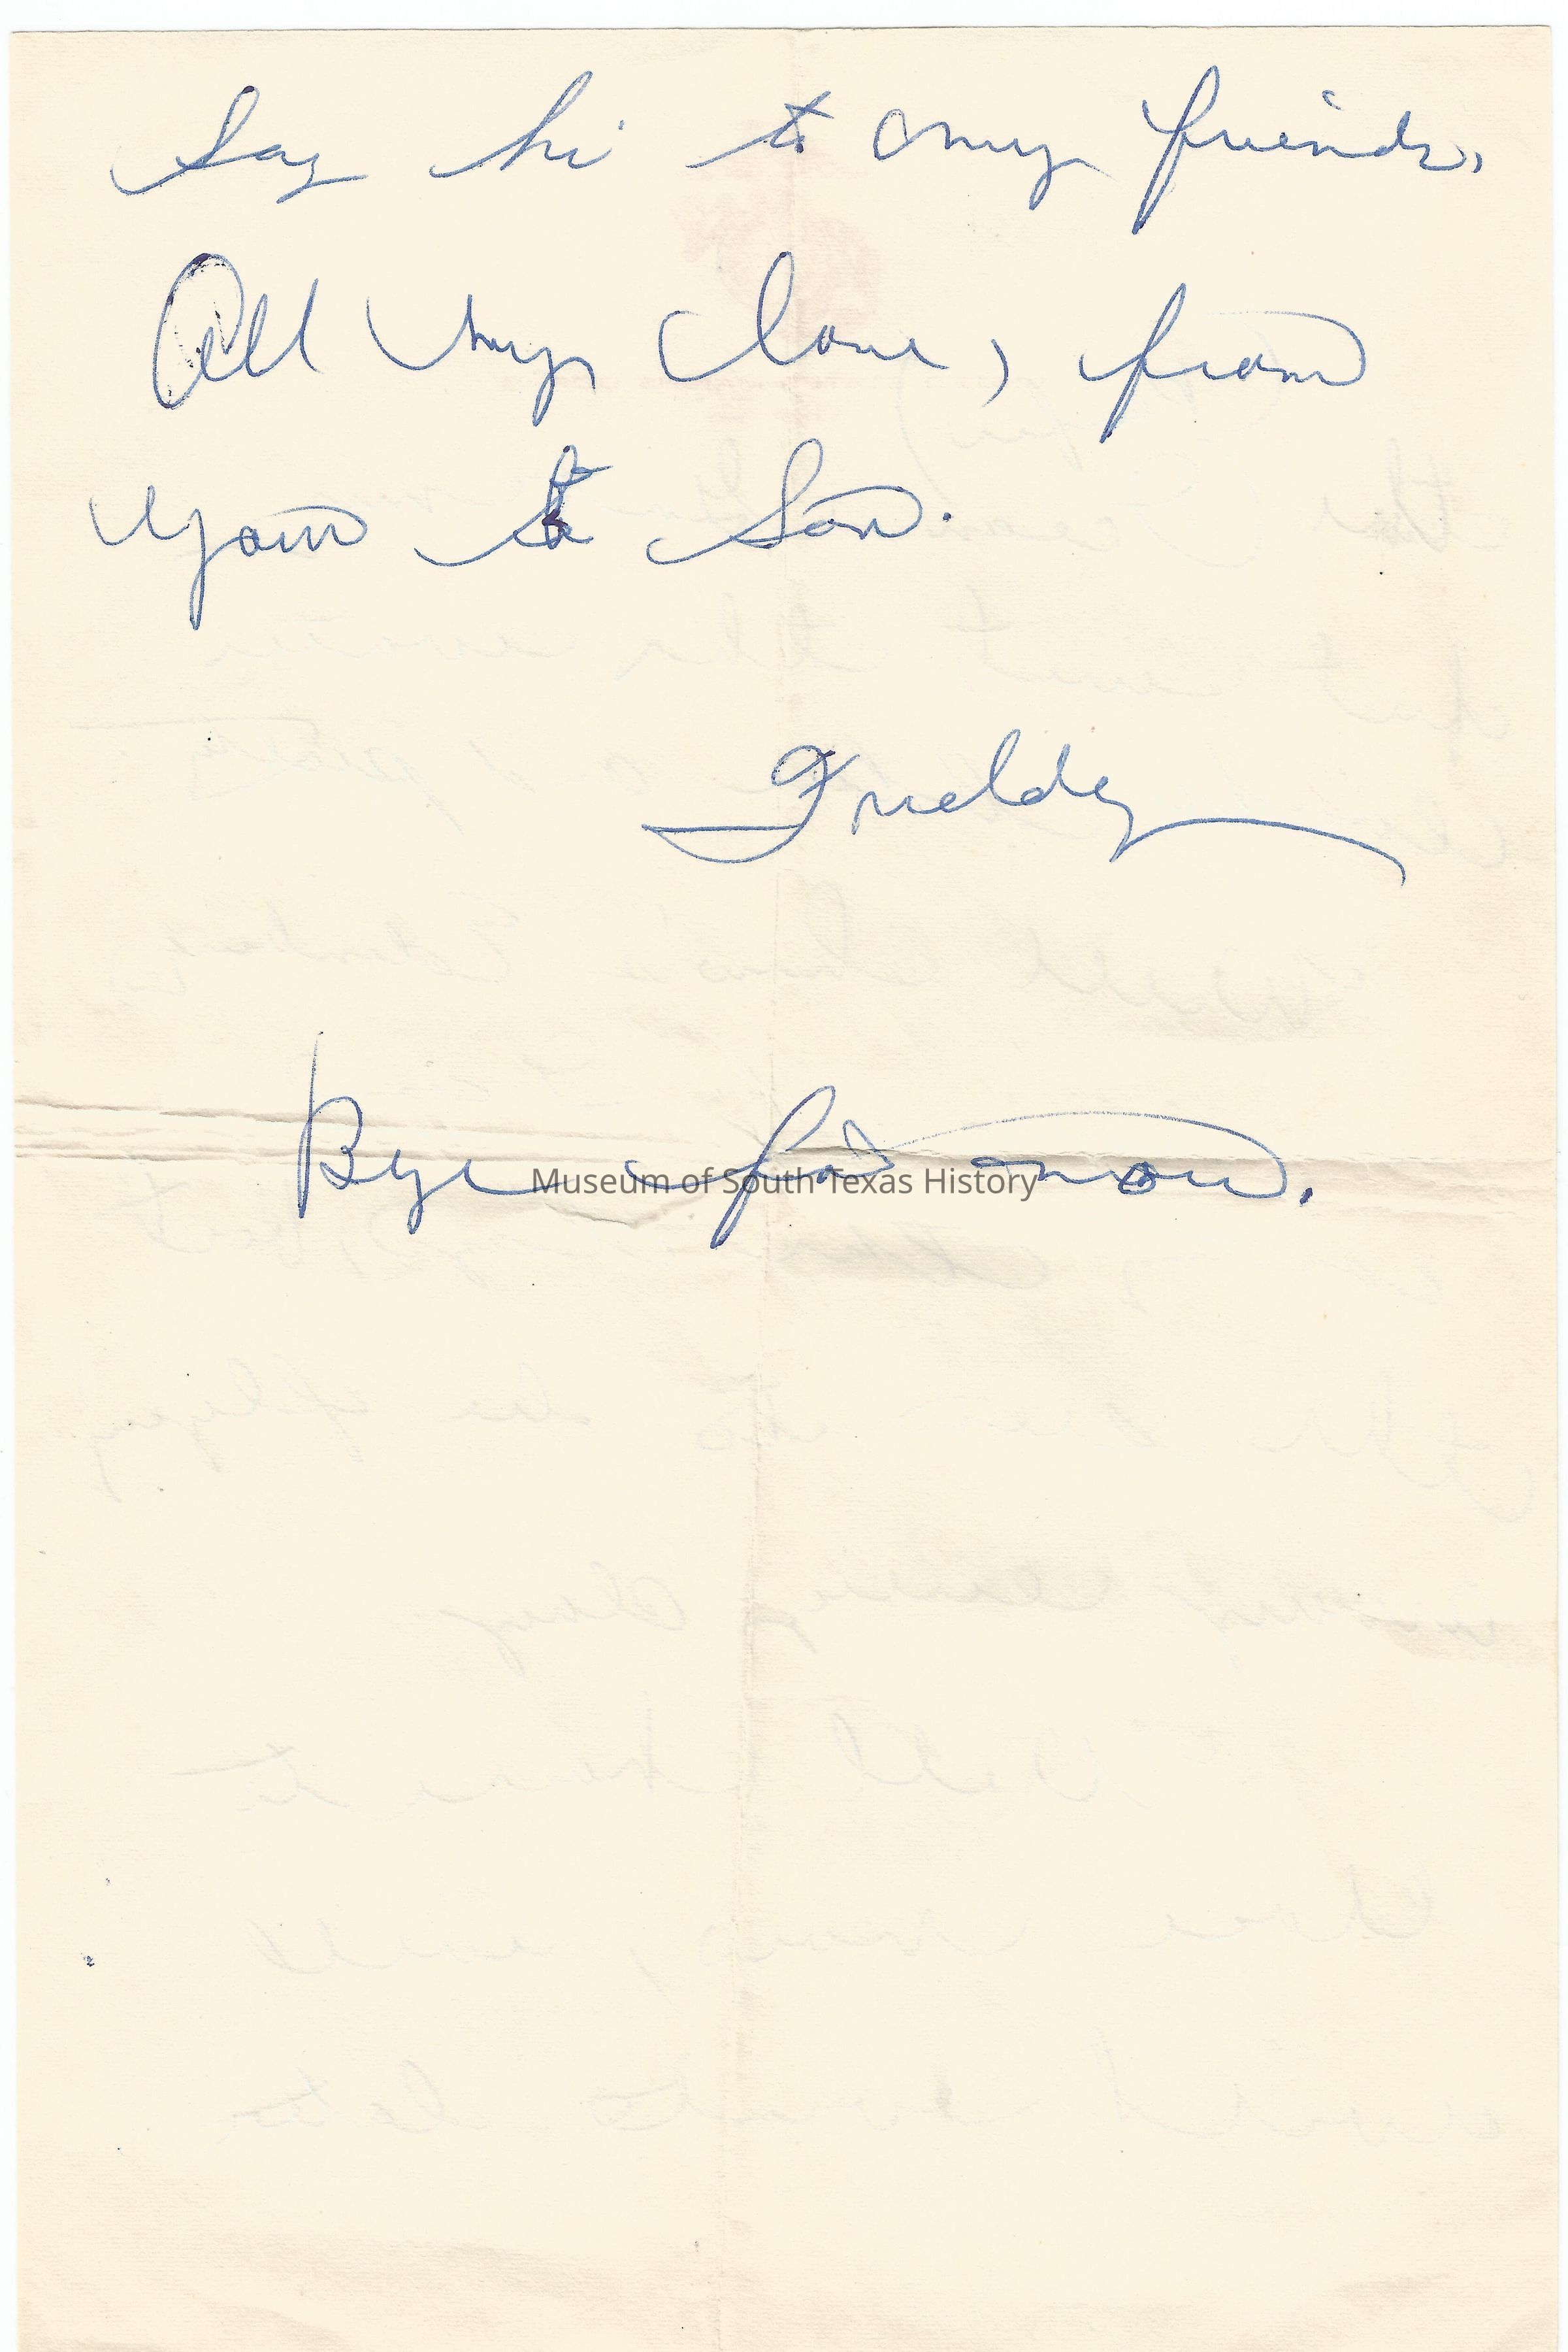 Say hi to my friends,
All my love, from
your to Son.
Freddy
Bye for now.
Museum of South Texas History